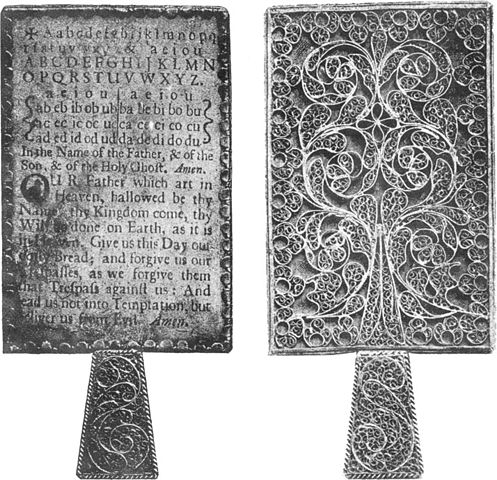 ✠ Aabcdefghijklmnopq
rſstuvwxyz & aeiou
ABCDEFGHIJKLMN
OPQRSTUVWXYZ.
aeiou | aeiou
ab eb ib ob ub | ba be bi bo bu
ac ec ic oc uc | ca ce ci co cu
ad ed id od ud | da de di do du
In the Name of the Father, & of the
Son, & of the Holy Ghoſt. Amen.
OUR Father which art in
Heaven, hallowed be thy
Name, thy Kingdom come, thy
Will be done on Earth, as it is
in Heaven. Give us this Day our
daily Bread; and forgive us our
Treſpaſſes, as we forgive them
that Treſpaſs againſt us: And
lead us not into Temptation, but
deliver us from Evil. Amen.